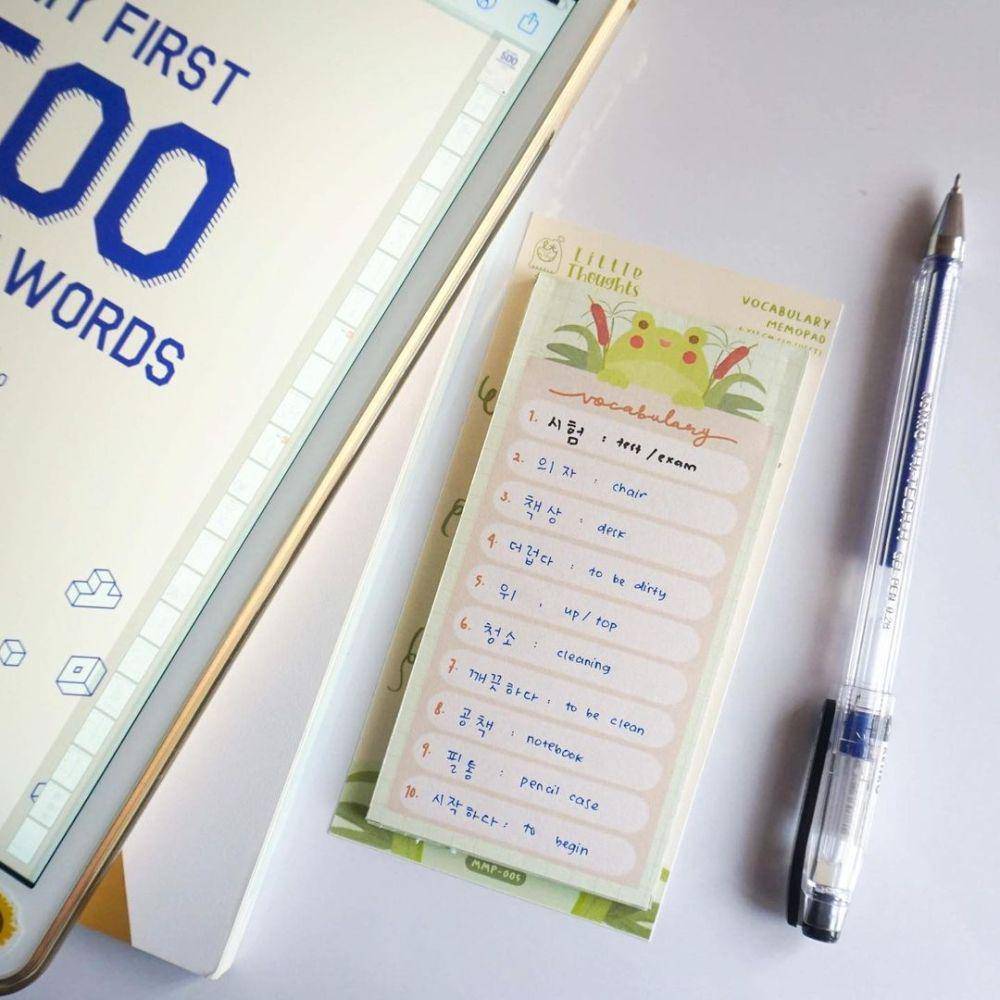 MY FIRST
500
WORDS
500
Little
Thoughts
VOCABULARY
MEMOPAD
vocabulary
1. 시험 : test / exam
2. 의자 : chair
3. 책상 : desk
4. 더럽다 : to be dirty
5. 위 : up / top
6. 청소 : cleaning
7. 깨끗하다 : to be clean
8. 공책 : notebook
9. 필통 : pencil case
10. 시작하다 : to begin
MMP-005
KENKO HI-TECH-H GEL PEN 0.28